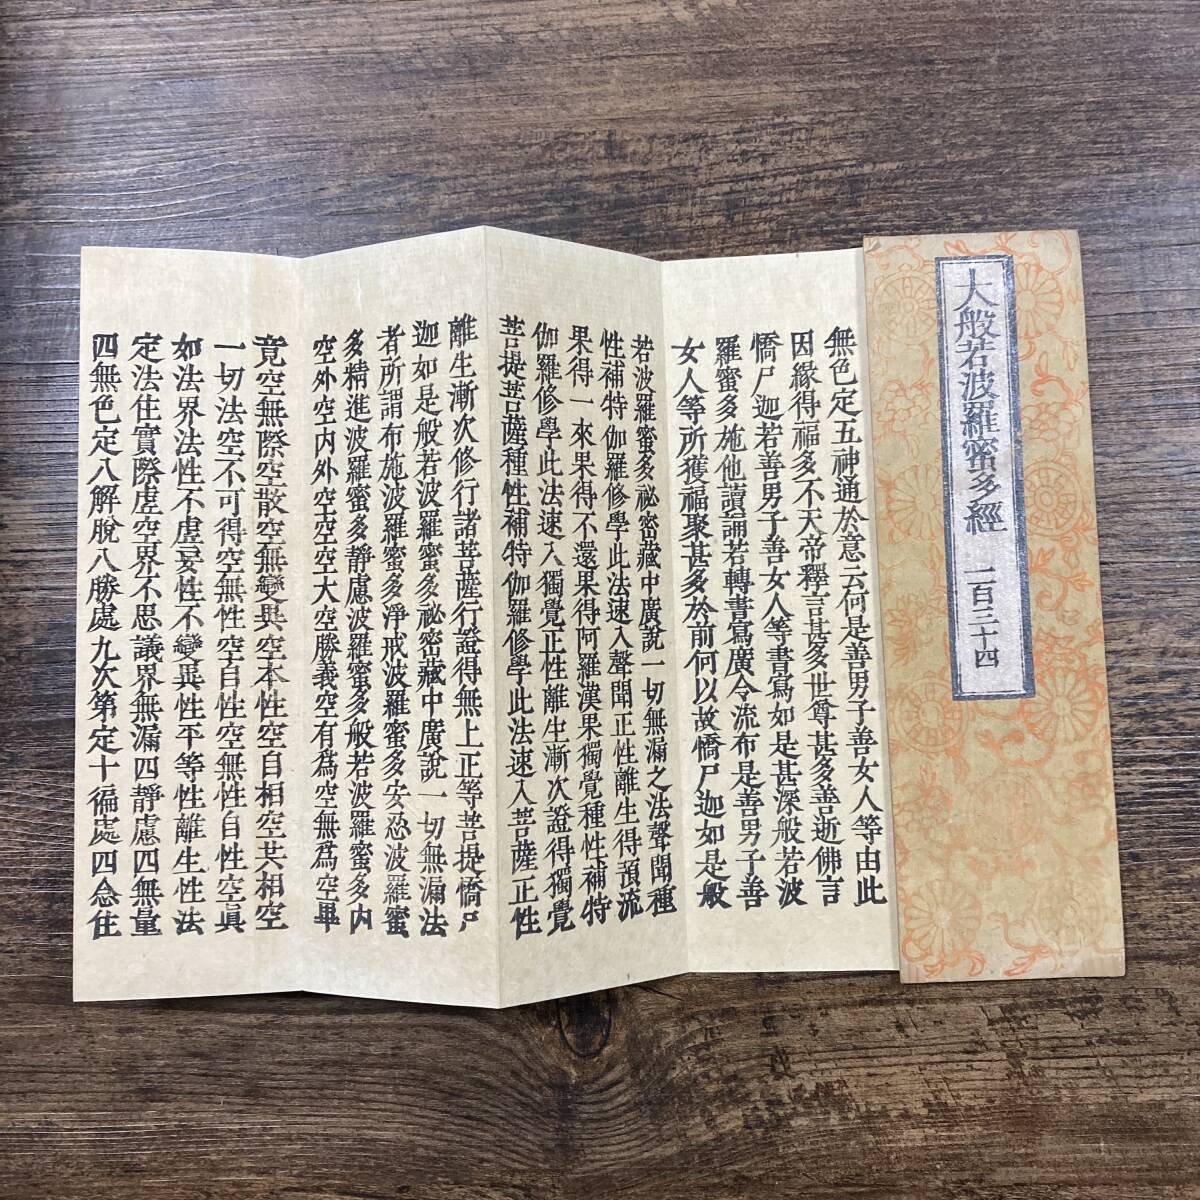 大般若波羅蜜多經 一百三十四
無色定五神通於意云何是善男子善女人等由此
因緣得福多不天帝釋言甚多世尊甚多善逝佛言
憍尸迦若善男子善女人等書寫如是甚深般若波
羅蜜多施他讀誦若轉書寫廣令流布是善男子善
女人等所獲福聚甚多於前何以故憍尸迦如是般
若波羅蜜多祕密藏中廣說一切無漏之法聲聞種
性補特伽羅修學此法速入聲聞正性離生得預流
果得一來果得不還果得阿羅漢果獨覺種性補特
伽羅修學此法速入獨覺正性離生漸次證得獨覺
菩提菩薩種性補特伽羅修學此法速入菩薩正性
離生漸次修行諸菩薩行證得無上正等菩提憍尸
迦如是般若波羅蜜多祕密藏中廣說一切無漏法
者所謂布施波羅蜜多淨戒波羅蜜多安忍波羅蜜
多精進波羅蜜多靜慮波羅蜜多般若波羅蜜多內
空外空內外空空空大空勝義空有為空無為空畢
竟空無際空散空無變異空本性空自相空共相空
一切法空不可得空無性空自性空無性自性空真
如法界法性不虛妄性不變異性平等性離生性法
定法住實際虛空界不思議界無漏四靜慮四無量
四無色定八解脫八勝處九次第定十徧處四念住